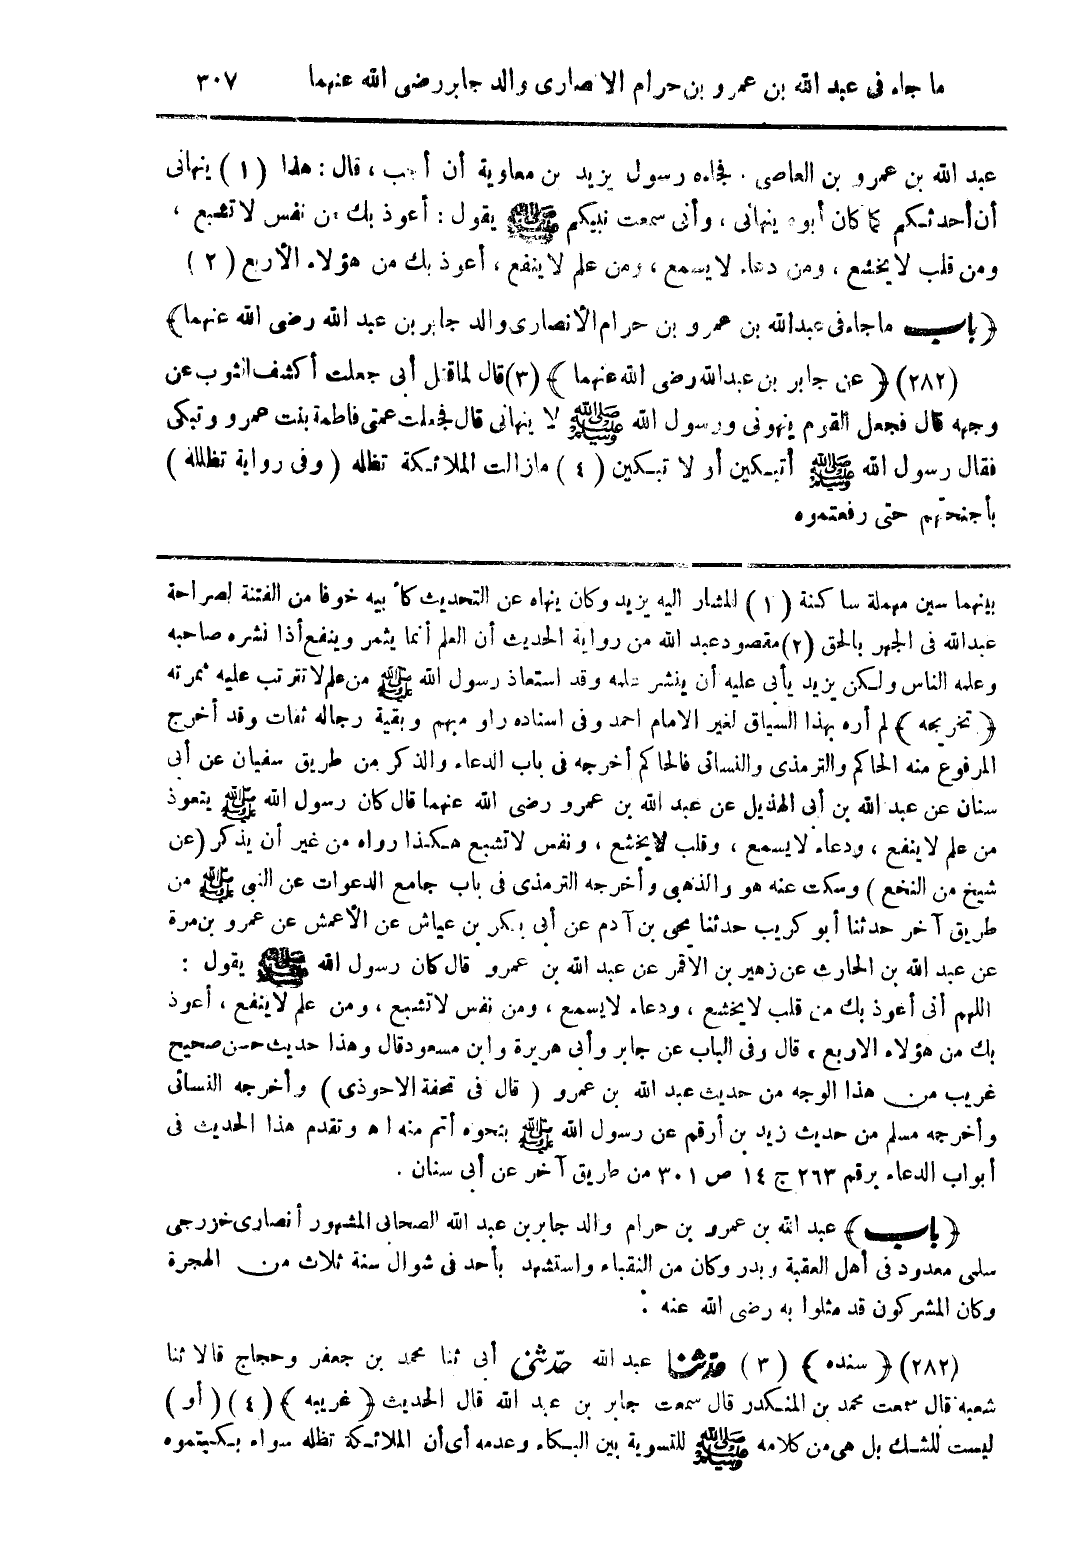 ما جاء فى عبد الله بن عمرو بن حرام الانصارى والد جابر رضى الله عنهما ٣٠٧
عبد الله بن عمرو بن العاصى . فجاءه رسول يزيد بن معاوية أن أجب ، قال : هذا (١) ينهانى
أن أحدثكم كما كان أبوه ينهانى ، وأنى سمعت نبيكم ﷺ يقول : أعوذ بك من نفس لا تشبع ،
ومن قلب لا يخشع ، ومن دعاء لا يسمع ، ومن علم لا ينفع ، أعوذ بك من هؤلاء الأربع (٢)
﴿باب ما جاء فى عبدالله بن عمرو بن حرام الأنصارى والد جابر بن عبد الله رضى الله عنهما﴾
(٢٨٢) ﴿ عن جابر بن عبدالله رضى الله عنهما ﴾ (٣) قال لما قتل أبى جعلت أكشف الثوب عن
وجهه قال فجعل القوم ينهونى ورسول الله ﷺ لا ينهانى قال فجعلت عمتى فاطمة بنت عمرو وتبكى
فقال رسول الله ﷺ أتبكين أو لا تبكين (٤) مازالت الملائكة تظله ( وفى رواية تظلله )
بأجنحتهم حتى رفعتموه
بينهما سين مهملة ساكنة (١) المشار اليه يزيد وكان ينهاه عن التحديث كأبيه خوفا من الفتنة لصراحة
عبدالله فى الجهر بالحق (٢) مقصود عبد الله من رواية الحديث أن العلم أنما يثمر وينفع أذا نشره صاحبه
وعلمه الناس ولكن يزيد يأبى عليه أن ينشر علمه وقد استعاذ رسول الله ﷺ من علم لا تترتب عليه ثمرته
﴿ تخريجه ﴾ لم أره بهذا السياق لغير الامام احمد وفى اسناده راو مبهم وبقية رجاله ثقات وقد أخرج
المرفوع منه الحاكم والترمذى والنسائى فالحاكم أخرجه فى باب الدعاء والذكر من طريق سفيان عن أبى
سنان عن عبد الله بن أبى الهذيل عن عبد الله بن عمرو رضى الله عنهما قال كان رسول الله ﷺ يتعوذ
من علم لا ينفع ، ودعاء لا يسمع ، وقلب لا يخشع ، ونفس لا تشبع هكذا رواه من غير أن يذكر (عن
شيخ من النخع ) وسكت عنه هو والذهبى وأخرجه الترمذى فى باب جامع الدعوات عن النبى ﷺ من
طريق آخر حدثنا أبو كريب حدثنا يحيى بن آدم عن أبى بكر بن عياش عن الأعمش عن عمرو بن مرة
عن عبد الله بن الحارث عن زهير بن الاقمر عن عبد الله بن عمرو قال كان رسول الله ﷺ يقول :
اللهم أنى أعوذ بك من قلب لا يخشع ، ودعاء لا يسمع ، ومن نفس لا تشبع ، ومن علم لا ينفع ، أعوذ
بك من هؤلاء الاربع ، قال وفى الباب عن جابر وأبى هريرة وابن مسعود قال وهذا حديث حسن صحيح
غريب من هذا الوجه من حديث عبد الله بن عمرو ( قال فى تحفة الاحوذى ) وأخرجه النسائى
وأخرجه مسلم من حديث زيد بن أرقم عن رسول الله ﷺ بنحوه أتم منه اه وتقدم هذا الحديث فى
أبواب الدعاء برقم ٢٦٣ ج ١٤ ص ٣٠١ من طريق آخر عن أبى سنان .
﴿باب﴾ عبد الله بن عمرو بن حرام والد جابر بن عبد الله الصحابى المشهور أنصارى خزرجى
سلمى معدود فى أهل العقبة وبدر وكان من النقباء واستشهد بأحد فى شوال سنة ثلاث من الهجرة
وكان المشركون قد مثلوا به رضى الله عنه :
(٢٨٢) ﴿ سنده ﴾ (٣) حدثنا عبد الله حدثنى أبى ثنا محمد بن جعفر وحجاج قالا ثنا
شعبه قال سمعت محمد بن المنكدر قال سمعت جابر بن عبد الله قال الحديث ﴿ غريبه ﴾ (٤) (أو)
ليست للشك بل هى من كلامه ﷺ للتسوية بين البكاء وعدمه أى أن الملائكة تظله سواء بكيتموه